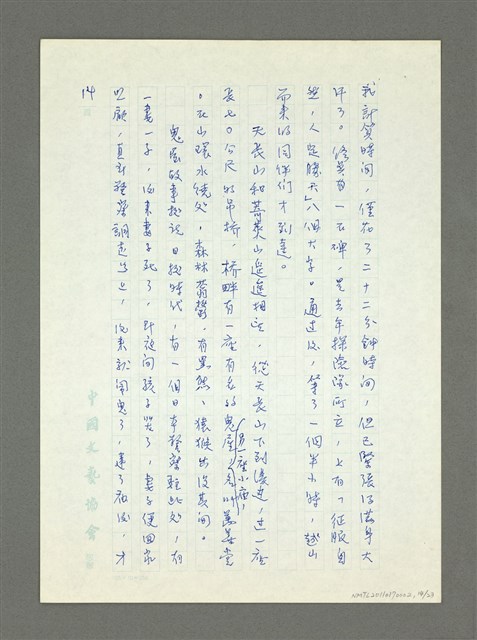 我計算時間，僅花了二十二分鐘時間，但已緊張得滿身大
汗了。終點有一石碑，是去年探險隊所立，上有「征服自
然，人定勝天」八個大字。通過後，等了一個半小時，越山
而來的同伴們才到達。
天長山和蓬萊山遙遙相望，從天長山下到溪邊，過一座
長七〇公尺的吊橋，橋畔有一座有名的鬼屋，
另一座小廟，名叫萬善堂
。在山環水繞處，森林蓊鬱，有黑熊、猿猴出沒其間。
鬼屋故事據說日據時代，有一個日本警察駐此處，有
一妻一子，後來妻子死了，那夜間孩子哭了，妻子便回來
照顧，直到種警調走為止，後來就鬧鬼了，建了廟後，才
14
中國文藝協會
NMTL20110190002, 14/23